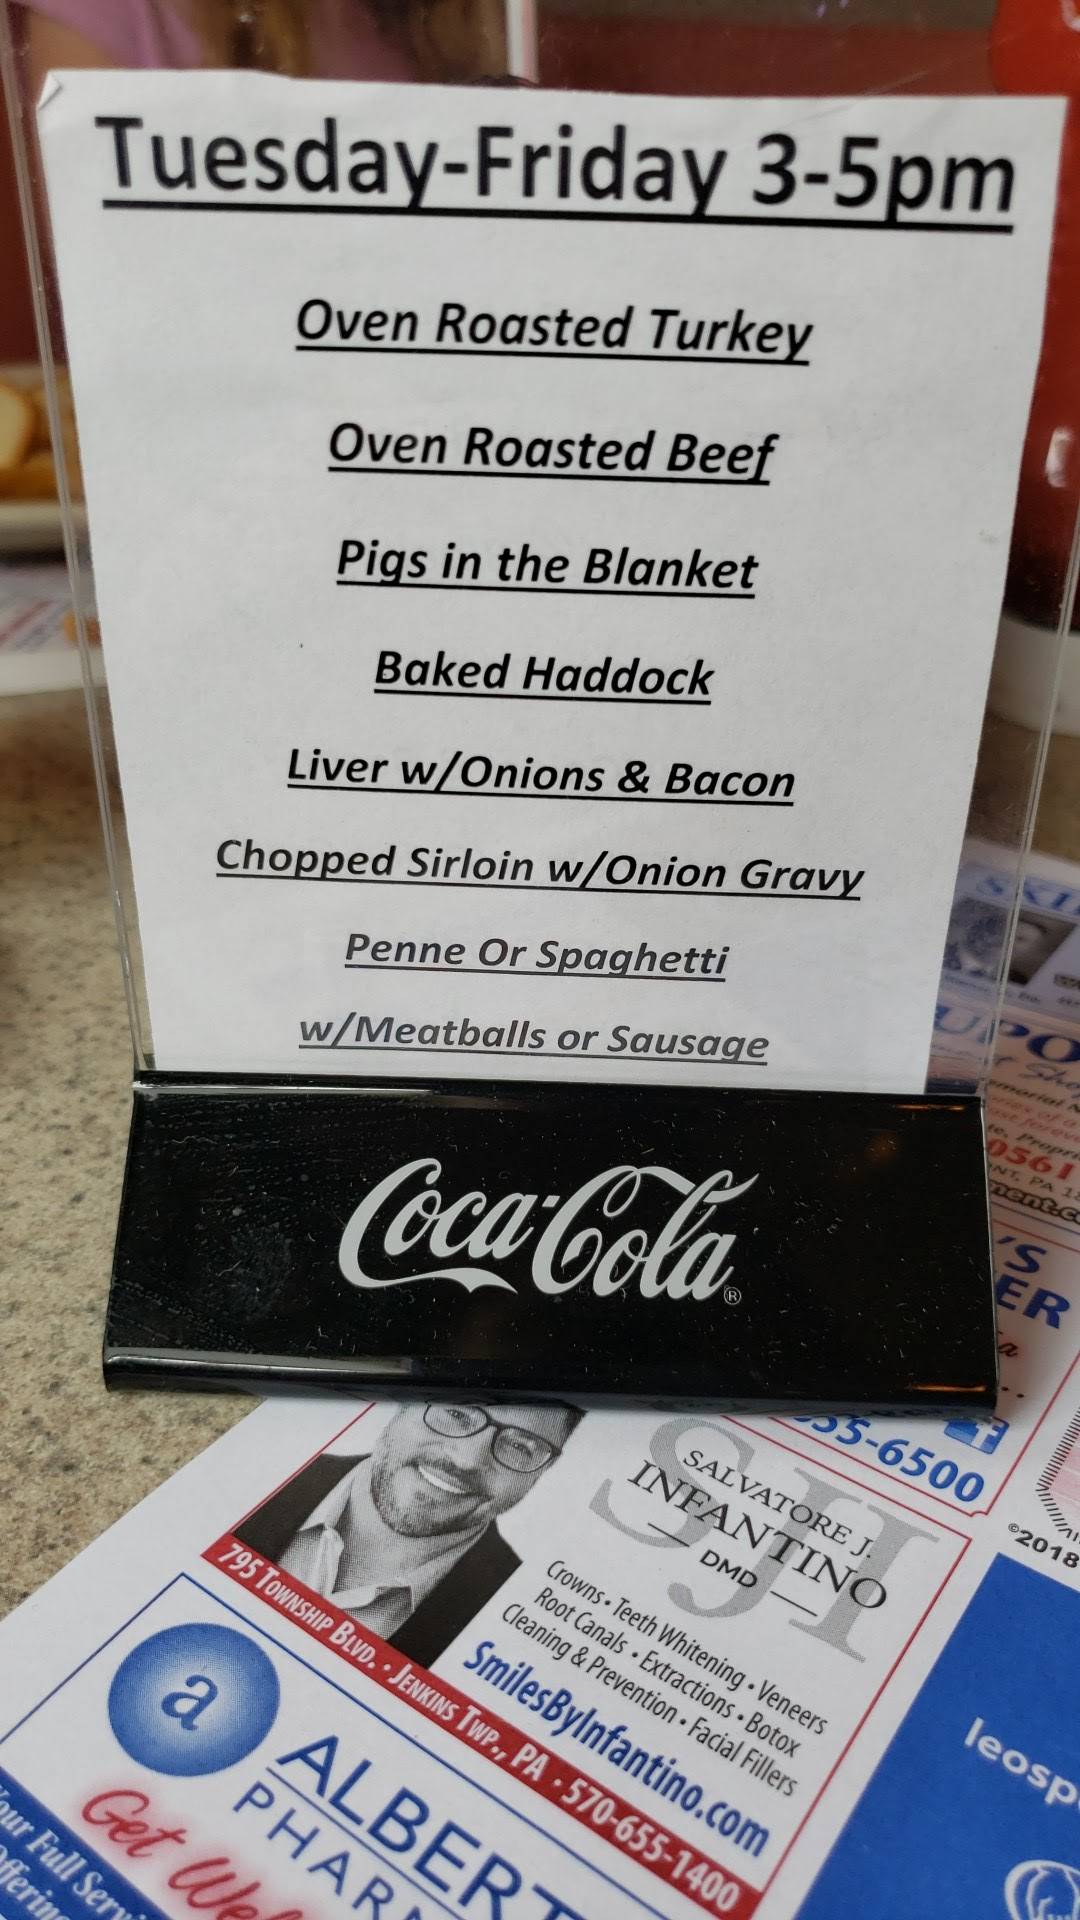 Tuesday-Friday 3-5pm
Oven Roasted Turkey
Oven Roasted Beef
Pigs in the Blanket
Baked Haddock
Liver w/Onions & Bacon
Chopped Sirloin w/Onion Gravy
Penne Or Spaghetti
w/Meatballs or Sausage
Coca-Cola®
0561
'S
ER
55-6500
©2018
SJI
SALVATORE J.
INFANTINO
DMD
Crowns • Teeth Whitening • Veneers
Root Canals • Extractions • Botox
Cleaning & Prevention • Facial Fillers
SmilesByInfantino.com
795 TOWNSHIP BLVD. • JENKINS TWP., PA • 570-655-1400
a
ALBERT
PHAR
Get We
Your Full Serv
ffering
leosp